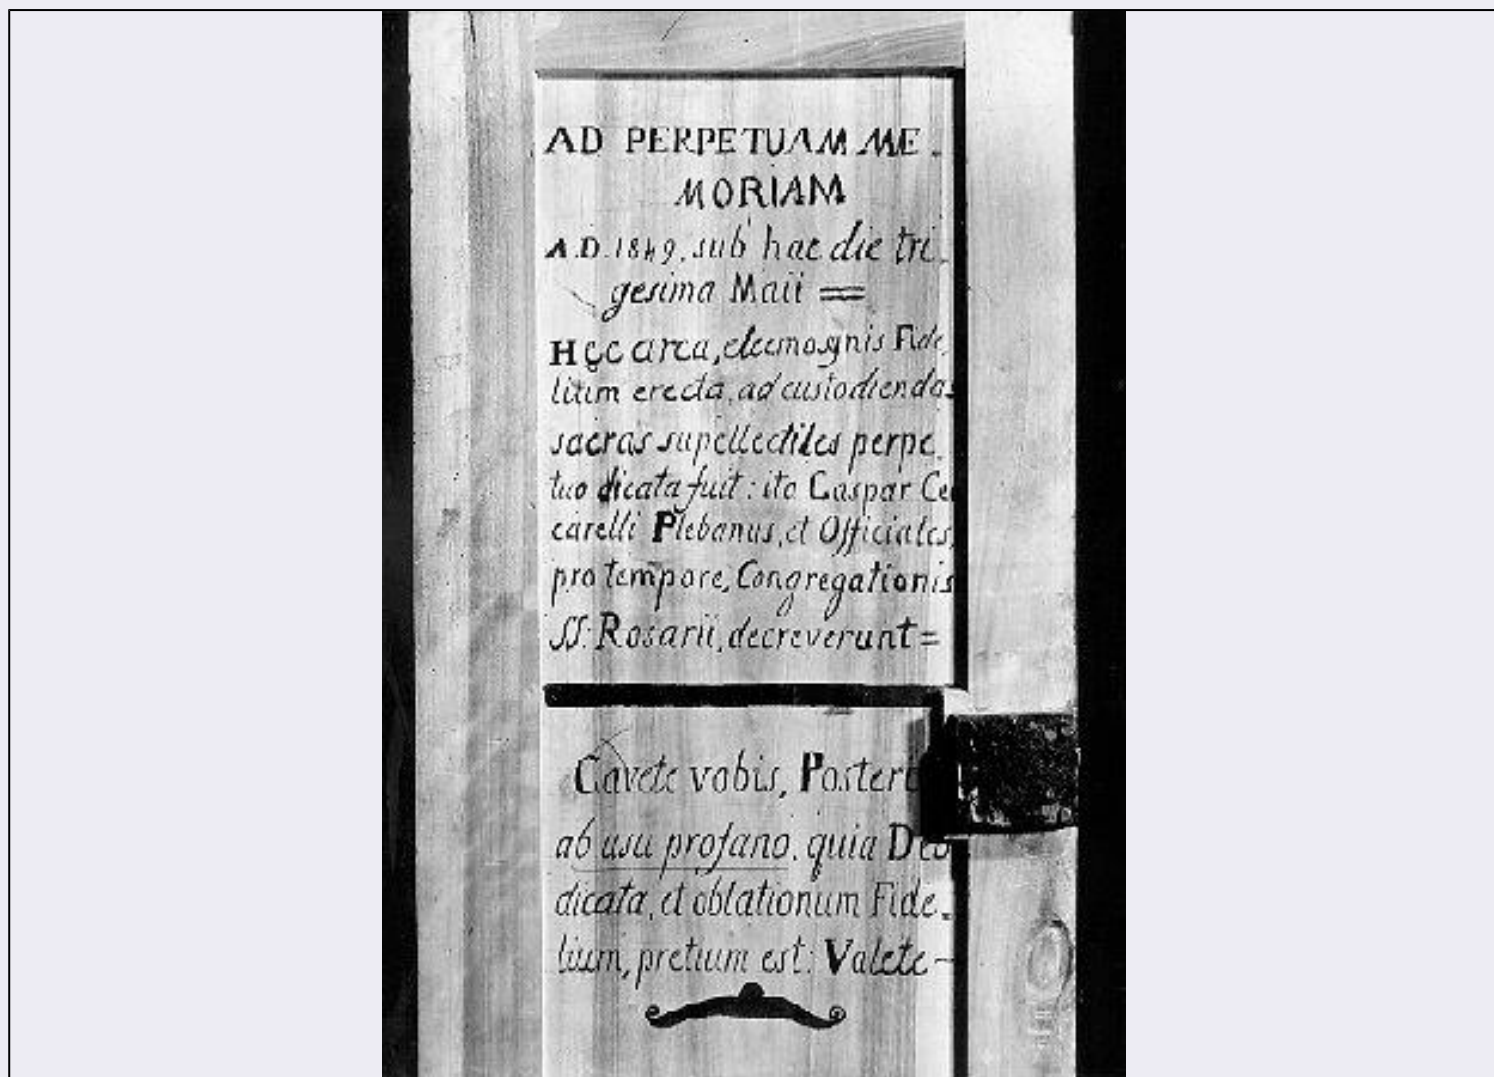 AD PERPETUAM ME-
MORIAM
A.D. 1849, sub hac die tri-
gesima Maii =
Hęc arca, eleemosynis Fide-
lium erecta, ad custodiendas
sacras supellectiles perpe-
tuo dicata fuit: ita Gaspar Cec
carelli Plebanus, et Officiales,
pro tempore, Congregationis
SS: Rosarii, decreverunt=
Cavete vobis, Posteri
ab usu profano, quia Deo
dicata, et oblationum Fide-
lium, pretium est: Valete-